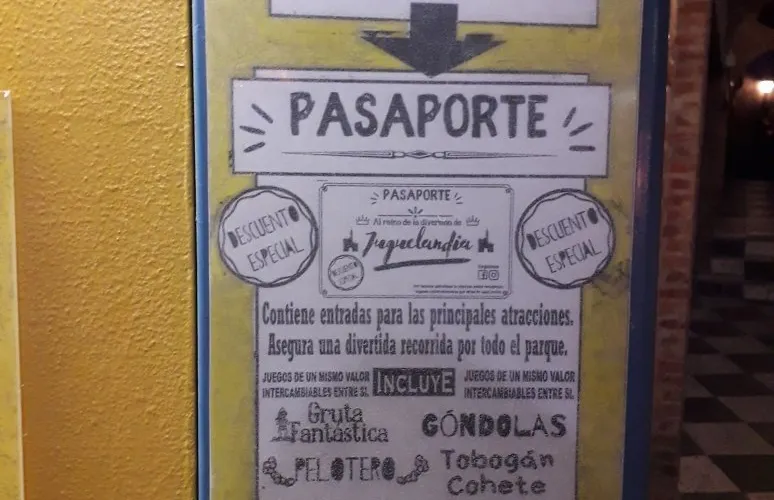 PASAPORTE
DESCUENTO
ESPECIAL
PASAPORTE
Al reino de la diversión de
Juguelandia
DESCUENTO
ESPECIAL
Contiene entradas para las principales atracciones.
Asegura una divertida recorrida por todo el parque.
JUEGOS DE UN MISMO VALOR
INTERCAMBIABLES ENTRE SI.
INCLUYE
JUEGOS DE UN MISMO VALOR
INTERCAMBIABLES ENTRE SI.
Gruta
Fantástica
GÓNDOLAS
PELOTERO
Tobogán
Cohete